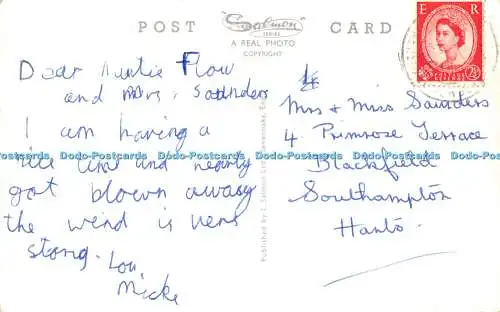 POST CARD
"Salmon"
SERIES
A REAL PHOTO
COPYRIGHT
E R
2½D
Dear Auntie Flow
and Mrs, Saunders
I am having a
nice time and nearly
got blown away
the wind is very
strong. Lov
Micke
Mrs & Miss Saunders
4, Primrose Terrace
Blackfield
Southampton
Hants.
Published by J. Salmon Ltd., Sevenoaks, Eng.
Dodo-Postcards Dodo-Postcards Dodo-Postcards Dodo-Postcards Dodo-Postcards